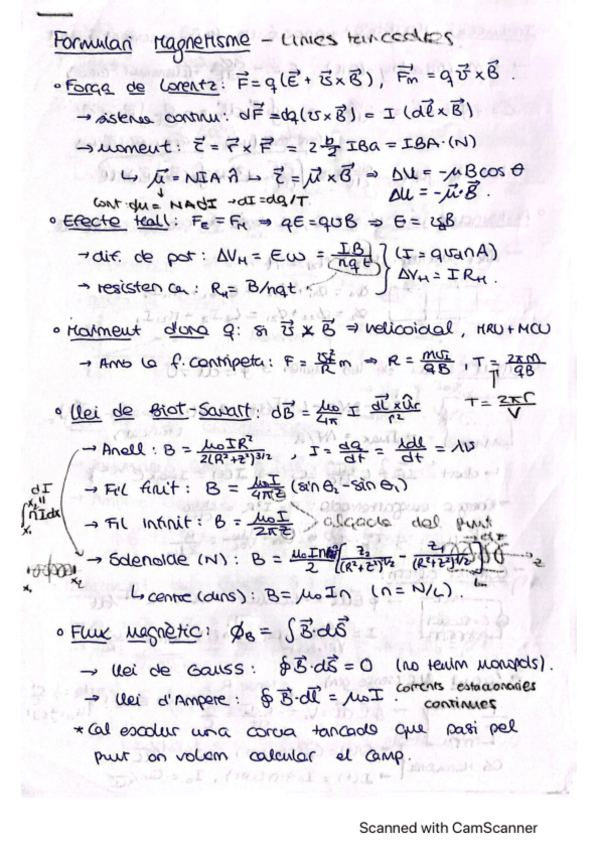 Formulari Magnetisme - Línies tancades
◦ Força de Lorentz: F⃗ = q(E⃗ + v⃗ x B⃗), F⃗m = q v⃗ x B⃗.
→ sistema continu: dF⃗ = dq(v x B⃗) = I (dl⃗ x B⃗)
→ moment: τ⃗ = r⃗ x F⃗ = 2 b/2 IBa = IBA·(N)
↳ μ⃗ = NIA ↳ τ⃗ = μ⃗ x B⃗ ⇒ ΔU = -μB cos θ
ΔU = -μ⃗·B⃗.
cont. dμ = NAdI → dI = dq/T.
◦ Efecte Hall: Fe = Fm ⇒ qE = qvB ⇒ E = vB
→ dif. de pot: ΔVH = Ew = IB/nqt (I = qvnA)
→ resistència: RH = B/nqt ΔVH = I RH.
◦ Moviment d'una q: si v⃗ x B⃗ ⇒ helicoidal, MRU + MCU
→ Amb la f. centrípeta: F = v²/R m ⇒ R = mv/qB, T = 2πm/qB
T = 2πr/v
◦ Llei de Biot-Savart: dB⃗ = μ0/4π I dl⃗ x ûr/r²
→ Anell: B = μ0IR²/2(R²+z²)^3/2, I = dq/dt = λdl/dt = λv
→ Fil finit: B = μ0I/4πz (sin θ2 - sin θ1)
→ Fil infinit: B = μ0I/2πz
alçada del punt
dI
∫ nIdx
x2
x1
→ Solenoide (N): B = μ0In/2 [z2/(R²+z²)^1/2 - z1/(R²+z²)^1/2]
z
x1 x2
↳ centre (dins): B = μ0In (n = N/L).
◦ Flux magnètic: ϕB = ∫ B⃗·dS⃗
→ Llei de Gauss: ∮ B⃗·dS⃗ = 0 (no tenim monopols).
→ Llei d'Ampere: ∮ B⃗·dl⃗ = μ0I. corrents estacionaries
continues
* Cal escollir una corva tancada que passi pel
punt on volem calcular el camp.
Scanned with CamScanner